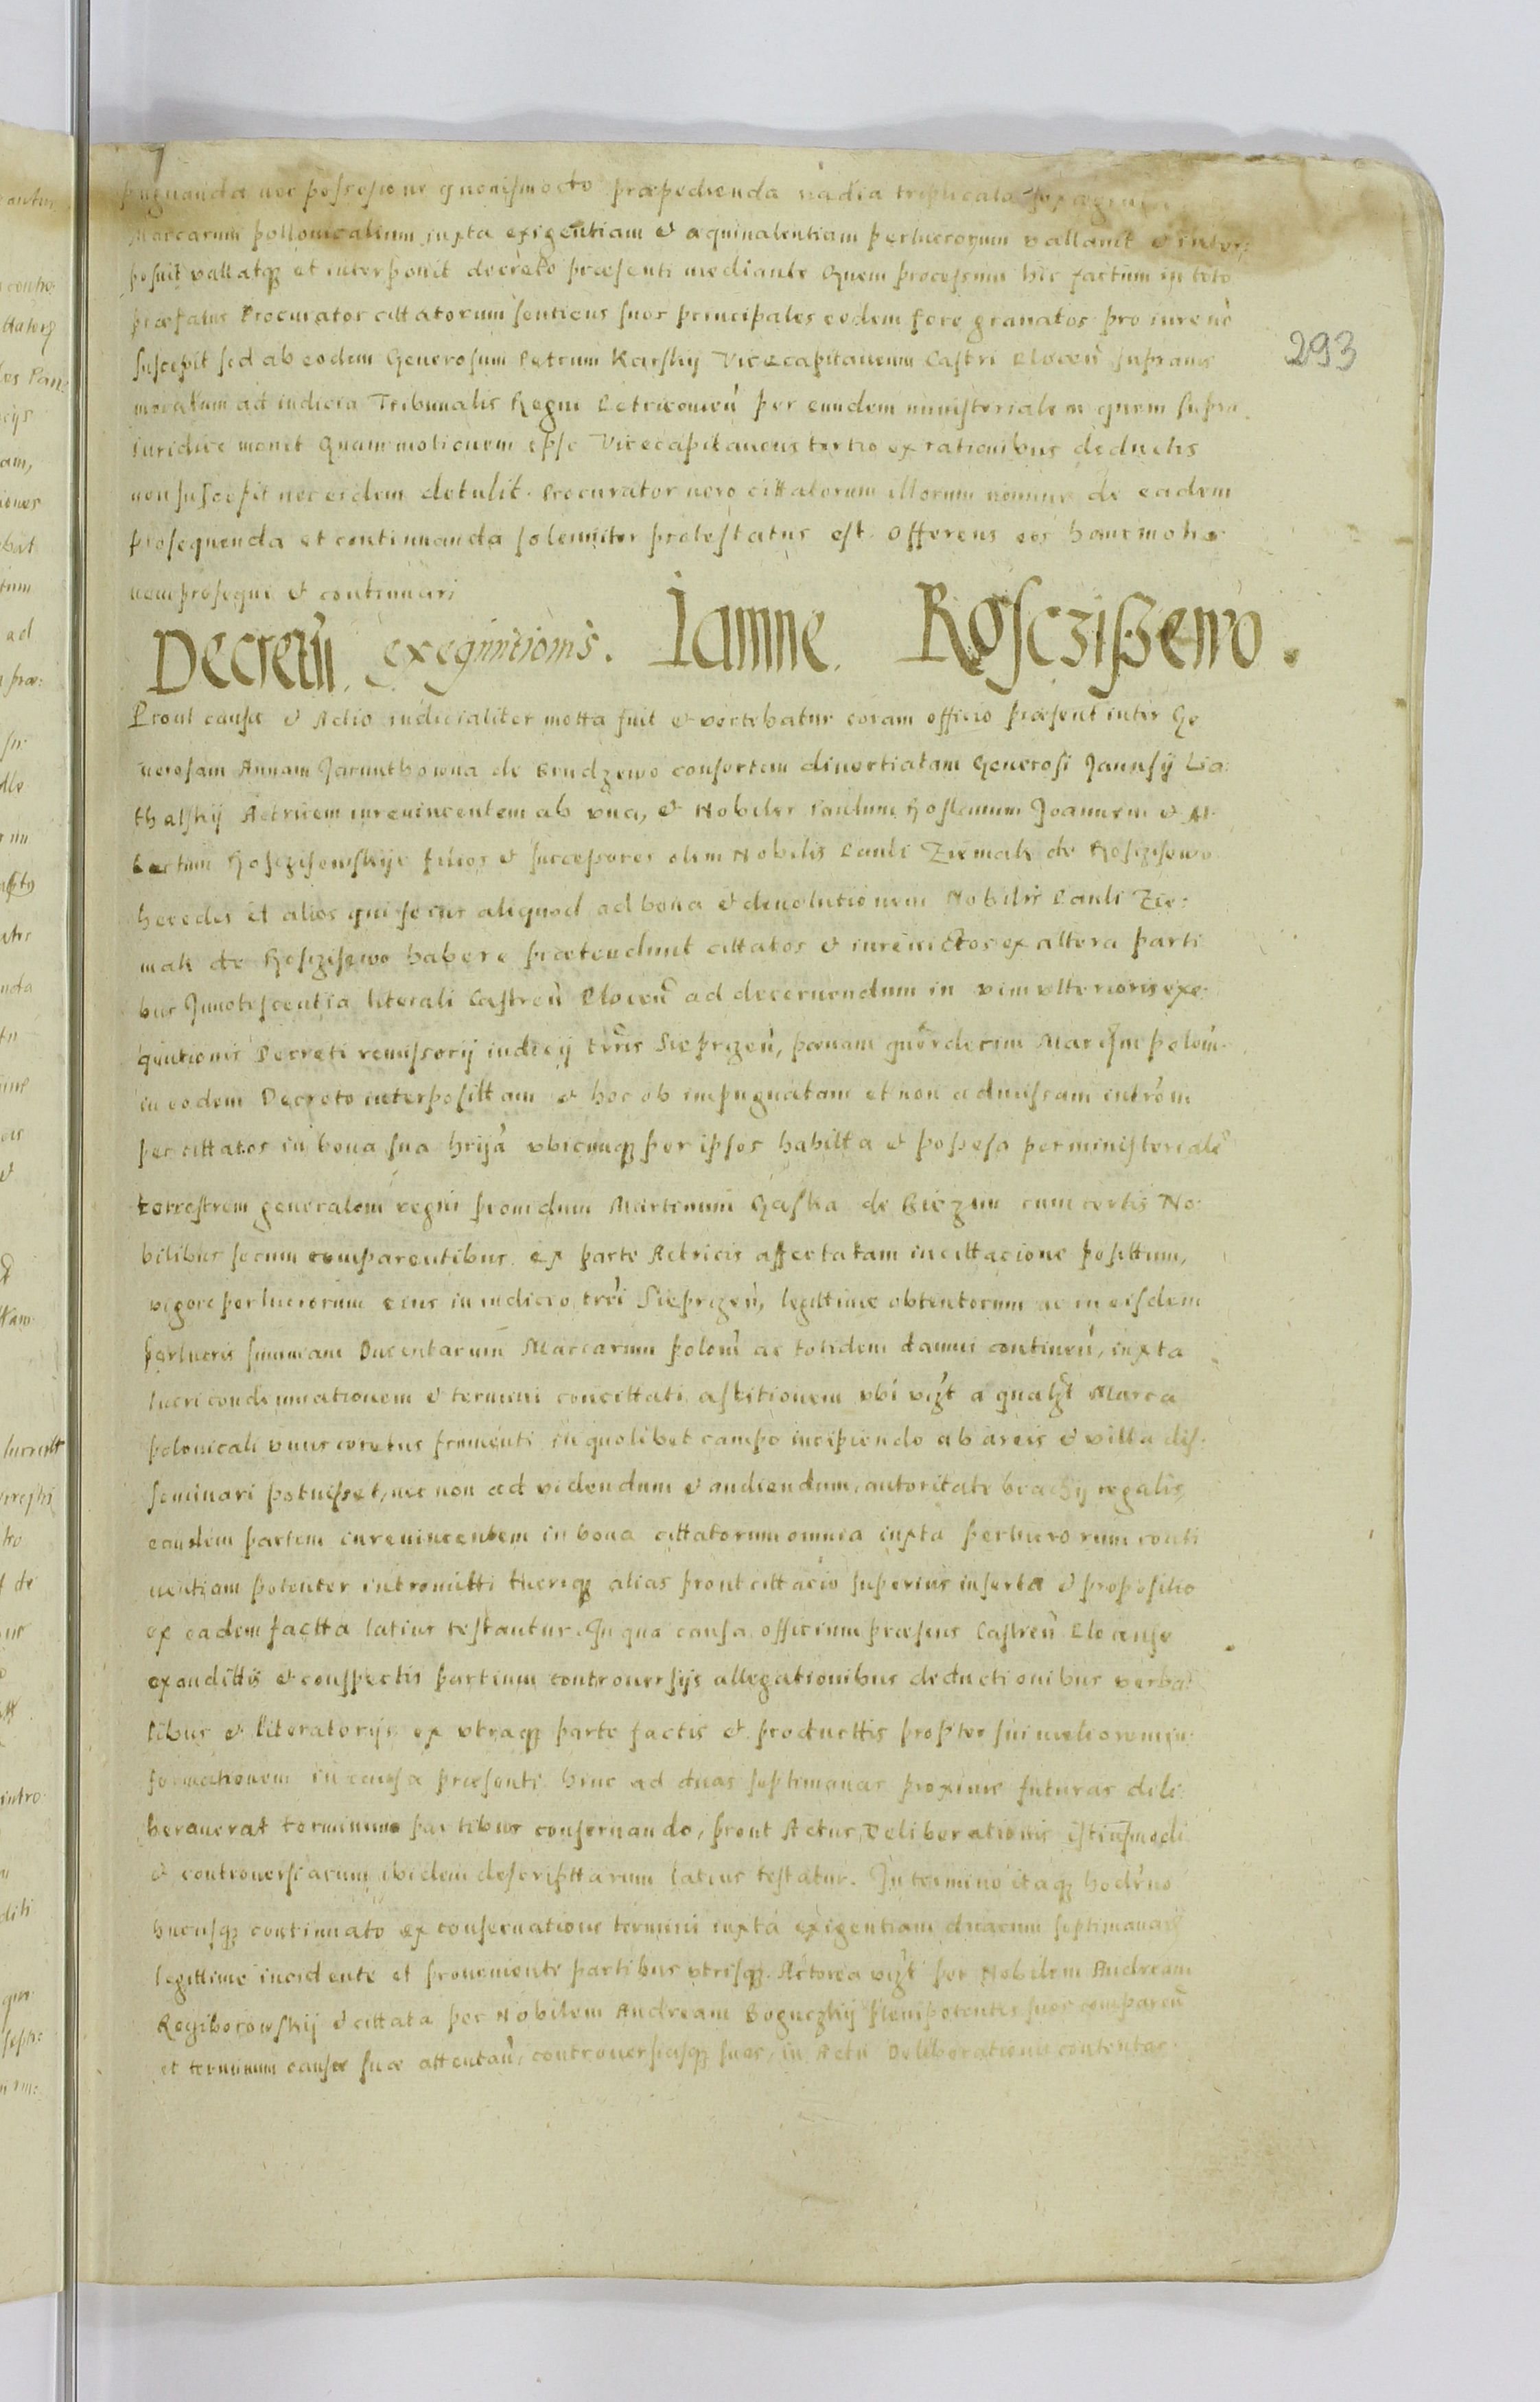 pugnanda nec possessione quouismodo præpedienda vadia triplicata
Marcarum pollonicalium juxta exigentiam et aquiualentiam perlucrorum vallauit et inter:
posuit vallatq et interponit decreto præsenti mediante Quem processum hic factum in toto
præfatus Procurator cittatorum sentiens suos principales eodem fore grauatos pro iure no
suscepit sed ab eodem Generosum Petrum Karskij Vicecapitaneum Castri Plocen supranó
minatum ad indicia Tribunalis Regni Petricouien per eundem ministerialem quem supra
iuridice mouit Quam motionem ipse Vicecapitaneus tertio ex rationibus deductis
non suscepit nec eidem detulit. Procurator uero cittatorum illorum nomine de eadem
prosequenda et continuanda solenniter protestatus est. Offerens eos hanc motio
nem prosequi et continuari
Decretū exequutionis. Iamne. Rosczißewo.
Prout causa et Actio iudicialiter motta fuit et vertebatur coram officio præsent inter Ge
nerosam Annam Jarunthowna de Grudzewo consortem diuortiatam Generosi Jaunsij Lia:
thalskij Actricem iureuincentem ab vna, et Nobiles Paulum Hostianum Joannem et Al
bertum Rosczisewskije filios et successores olim Nobilis Pauli Ziemak de Rosczisewo
heredes et alios qui se ius aliquod ad bona et deuolutionem Nobilis Pauli Zie:
mak de Rosczisewo habere prætendunt cittatos et iureuictos ex altera parti
bus Innotescentia literali Castren Plocen ad decernendum in vim vlterioris exe:
quutionis Decreti remissorij iudicij trris Sieprzen, pœnam quordecim Marcam polom
in eodem Decreto interposittam et hoc ob impugnatam et non admissam introm
per cittatos in bona sua hrija vbicumq per ipsos habitta et possesa per ministeriale
terrestrem generalem regni prouidum Martinum Gaska de Giezun cum certis No
bilibus secum comparentibus ex parte Actricis affectatam in cittacione posittum,
vigore perlucrorum eius in iudicio trri Sieprzen, legittime obtentorum ac in eisdem
perlucris summam Ducentarum Marcarum polom ac totidem damni continen, iuxta
lucri condemnationem et termini concittati astitionem vbi vizt a qualzt Marca
polonicali vnus coretus frumenti in quolibet campo incipiendo ab areis et villa dis
seminari potuisset, nec non ad videndum et audiendum, autoritate brachij regalis
eandem partem iureuincentem in bona cittatorum omnia iuxta perlucrorum conti
nentiam potenter intromitti tueriq alias prout cittacio superius inserta et propositio
ex eadem factta latius testantur. In qua causa officium præsens Castren Plocense
exaudittis et conspectis partium controuersijs allegationibus deductionibus verba
libus et literatorijs ex vtraq parte factis et producttis propter sui meliorem in
formationem in causa præsenti hinc ad duas septimanas proxime futuras deli
berauerat terminum partibus conseruando, prout Actus Deliberationis istiusmodi
et controuersiarum ibidem descripttarum latius testatur. In termino itaq hodrno
hucusq continuato ex conseruatione termini iuxta exigentiam duarum septimanar
legittime incidente et proueniente partibus vtrisq. Actorea vizt per Nobilem Andream
Regiborowskij et cittata per Nobilem Andream Boguczkij plenipotentes suos comparen
et terminum causæ suæ attentan, controuersiasq suas, in Actu Deliberationis contentas
293